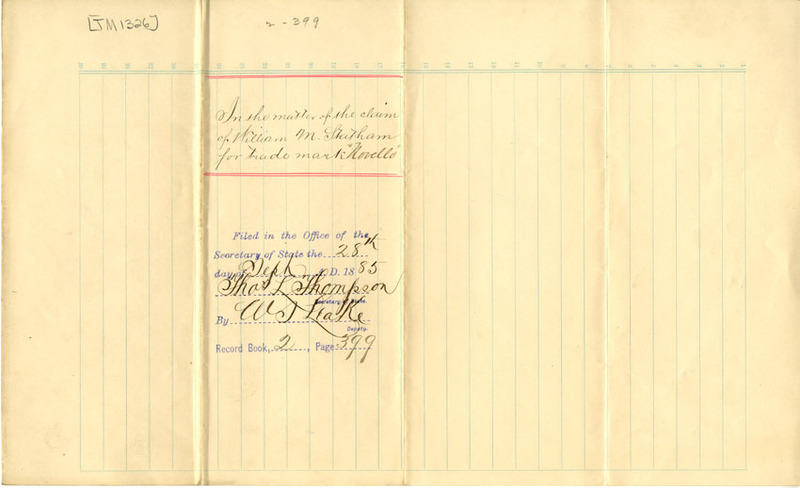 [TM1326]
2-399
In the matter of the claim
of William M. Statham
for trade mark "Novello"
Filed in the Office of the
Secretary of State the 28th
day of Sept A.D. 1885
Thos L Thompson
Secretary of State.
By W J Leake
Deputy.
Record Book, 2, Page 399